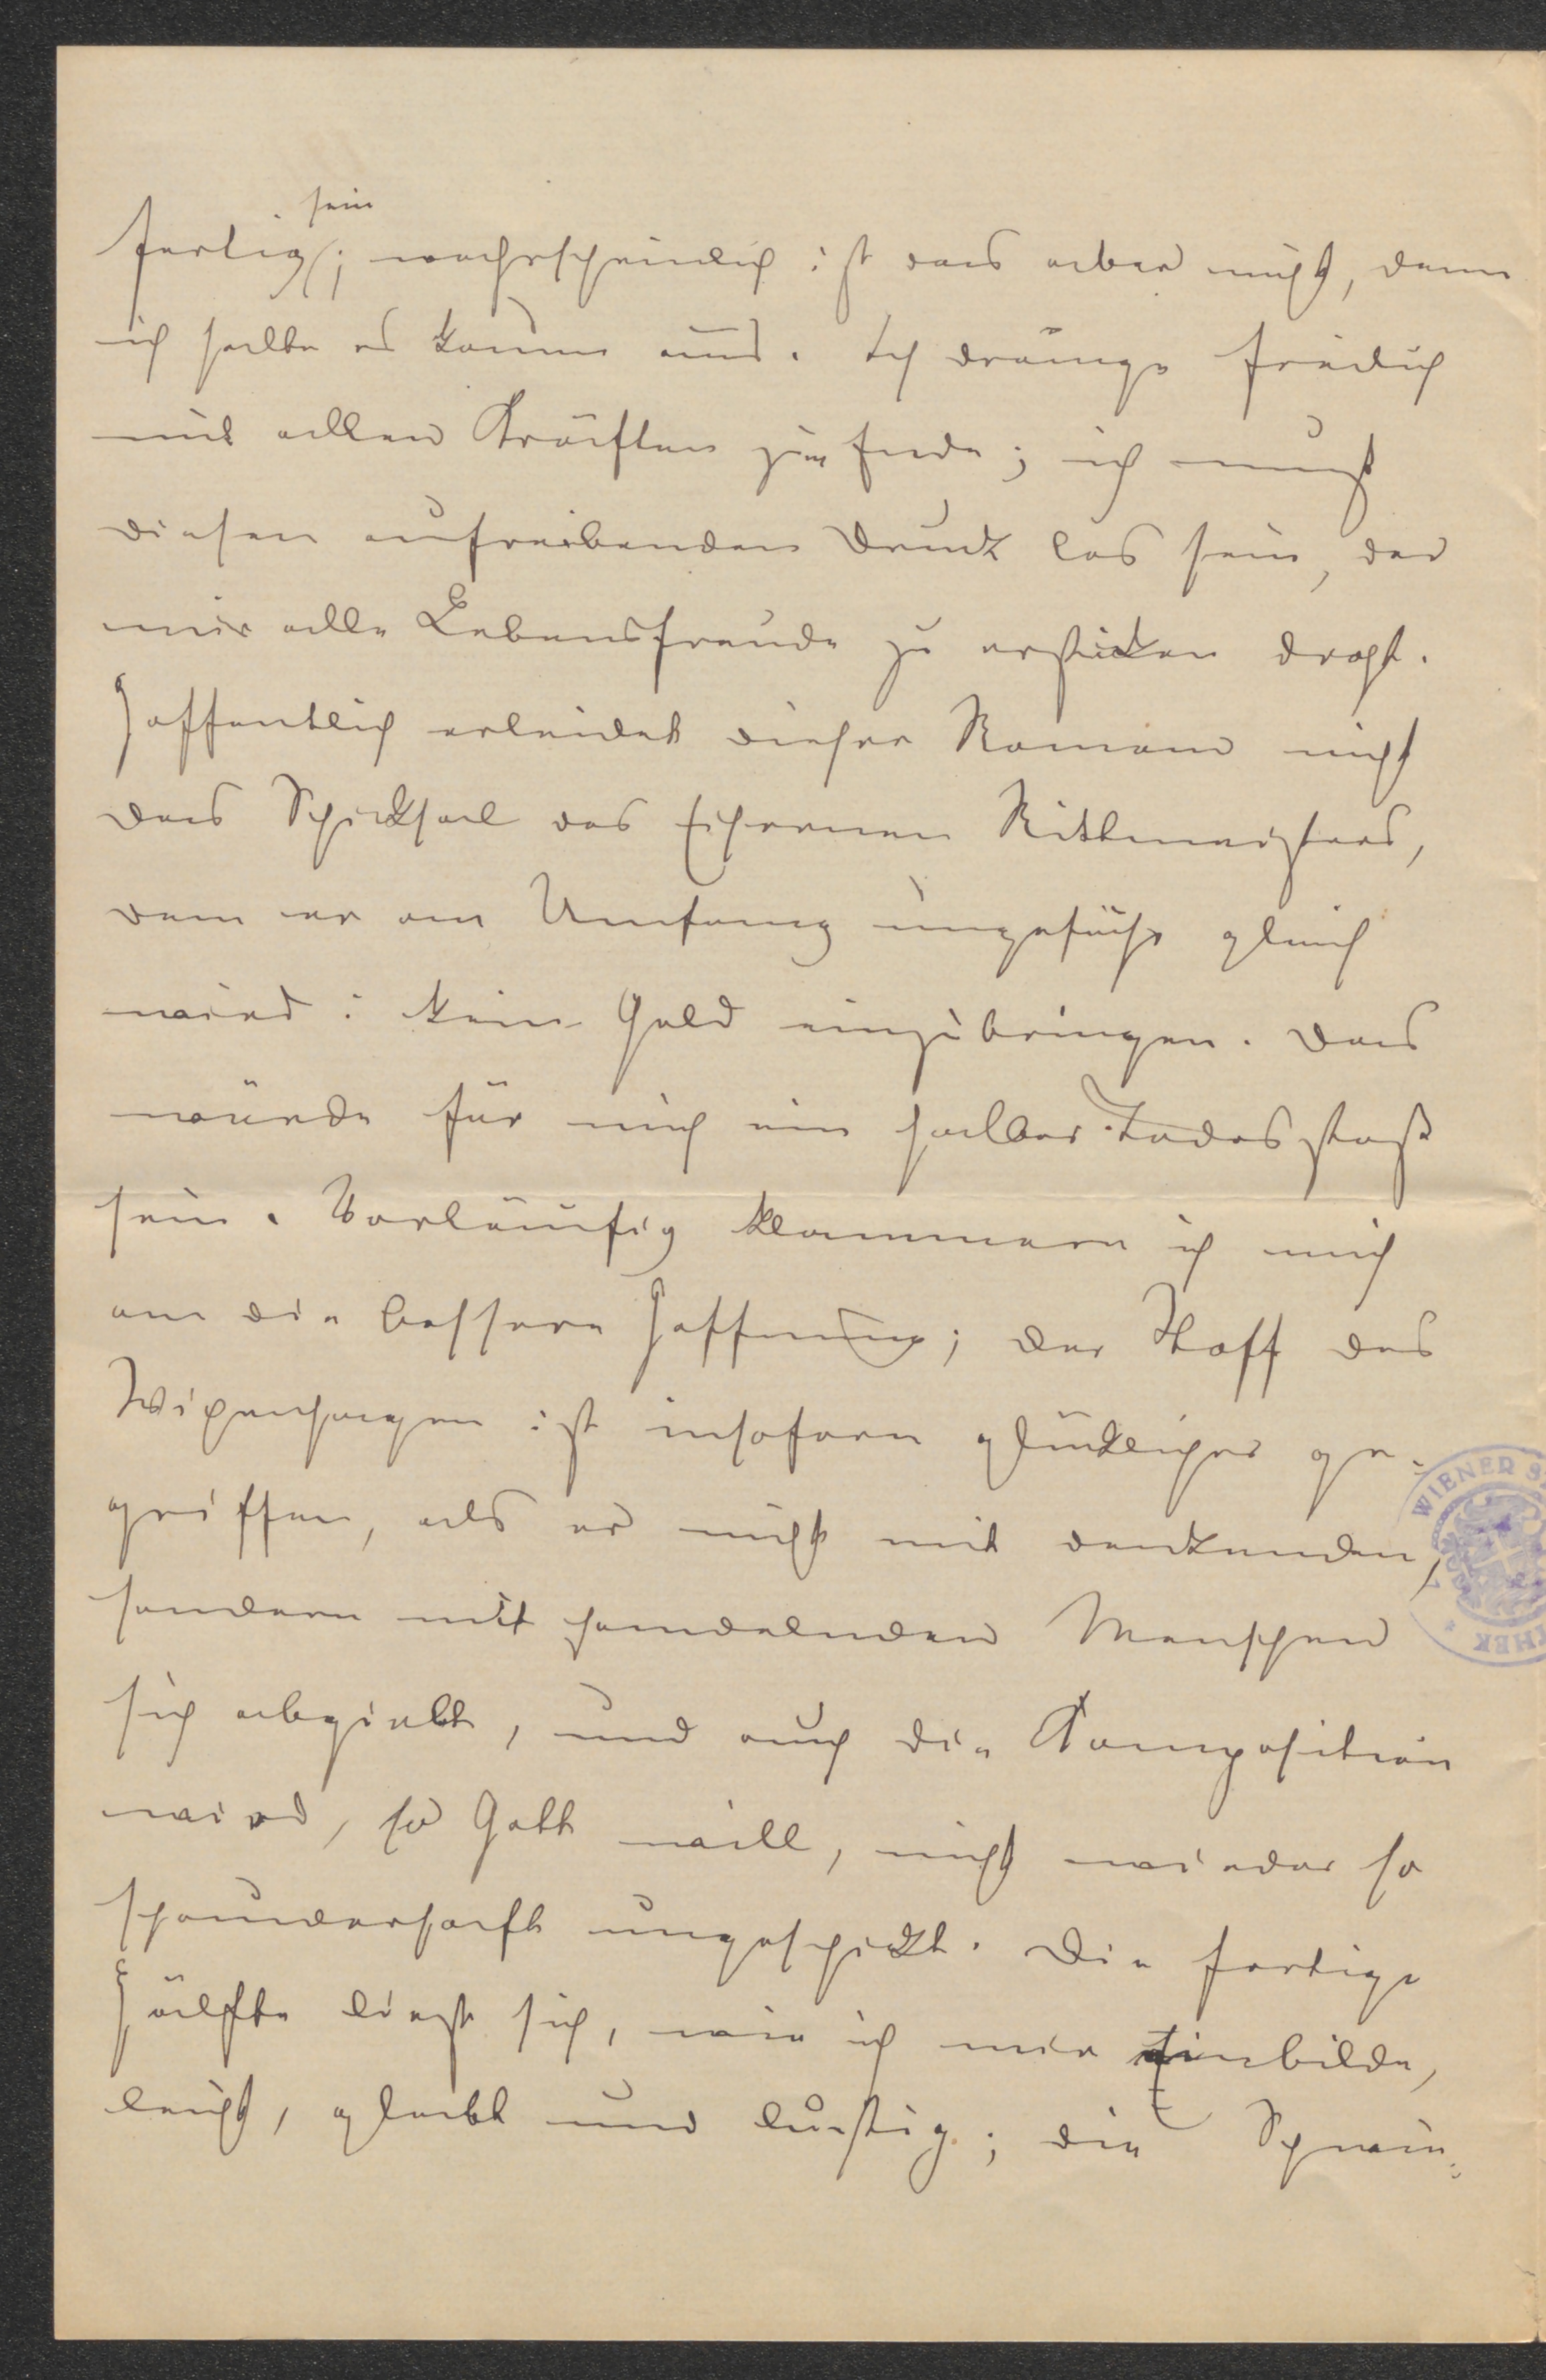 sein
fertig; wahrscheinlich ist das aber nicht, denn
ich halte es kaum aus. Ich dränge freilich
mit allen Kräften zum Ende; ich muß
diesen aufreibenden Druck los sein, der
mir alle Lebensfreude zu ersticken droht.
Hoffentlich erleidet dieser Roman nicht
das Schicksal des Eisernen Rittmeisters,
dem er an Umfang ungefähr gleich
wird: kein Geld einzubringen. Das
würde für mich ein halber Todesstoß
sein. Vorläufig klammere ich mich
an die bessere Hoffnung; der Stoff des
ist insofern glücklicher ge-
griffen, als er nicht mit denkenden,
sondern mit handelnden Menschen
sich abgiebt, und auch die Komposition
wird, so Gott will, nicht wieder so
schauderhaft ungeschickt. Die fertige
Hälfte liest sich, wie ich mir einbilde,
leicht, glatt und lustig; die Schwein-
WIENER S
THEK